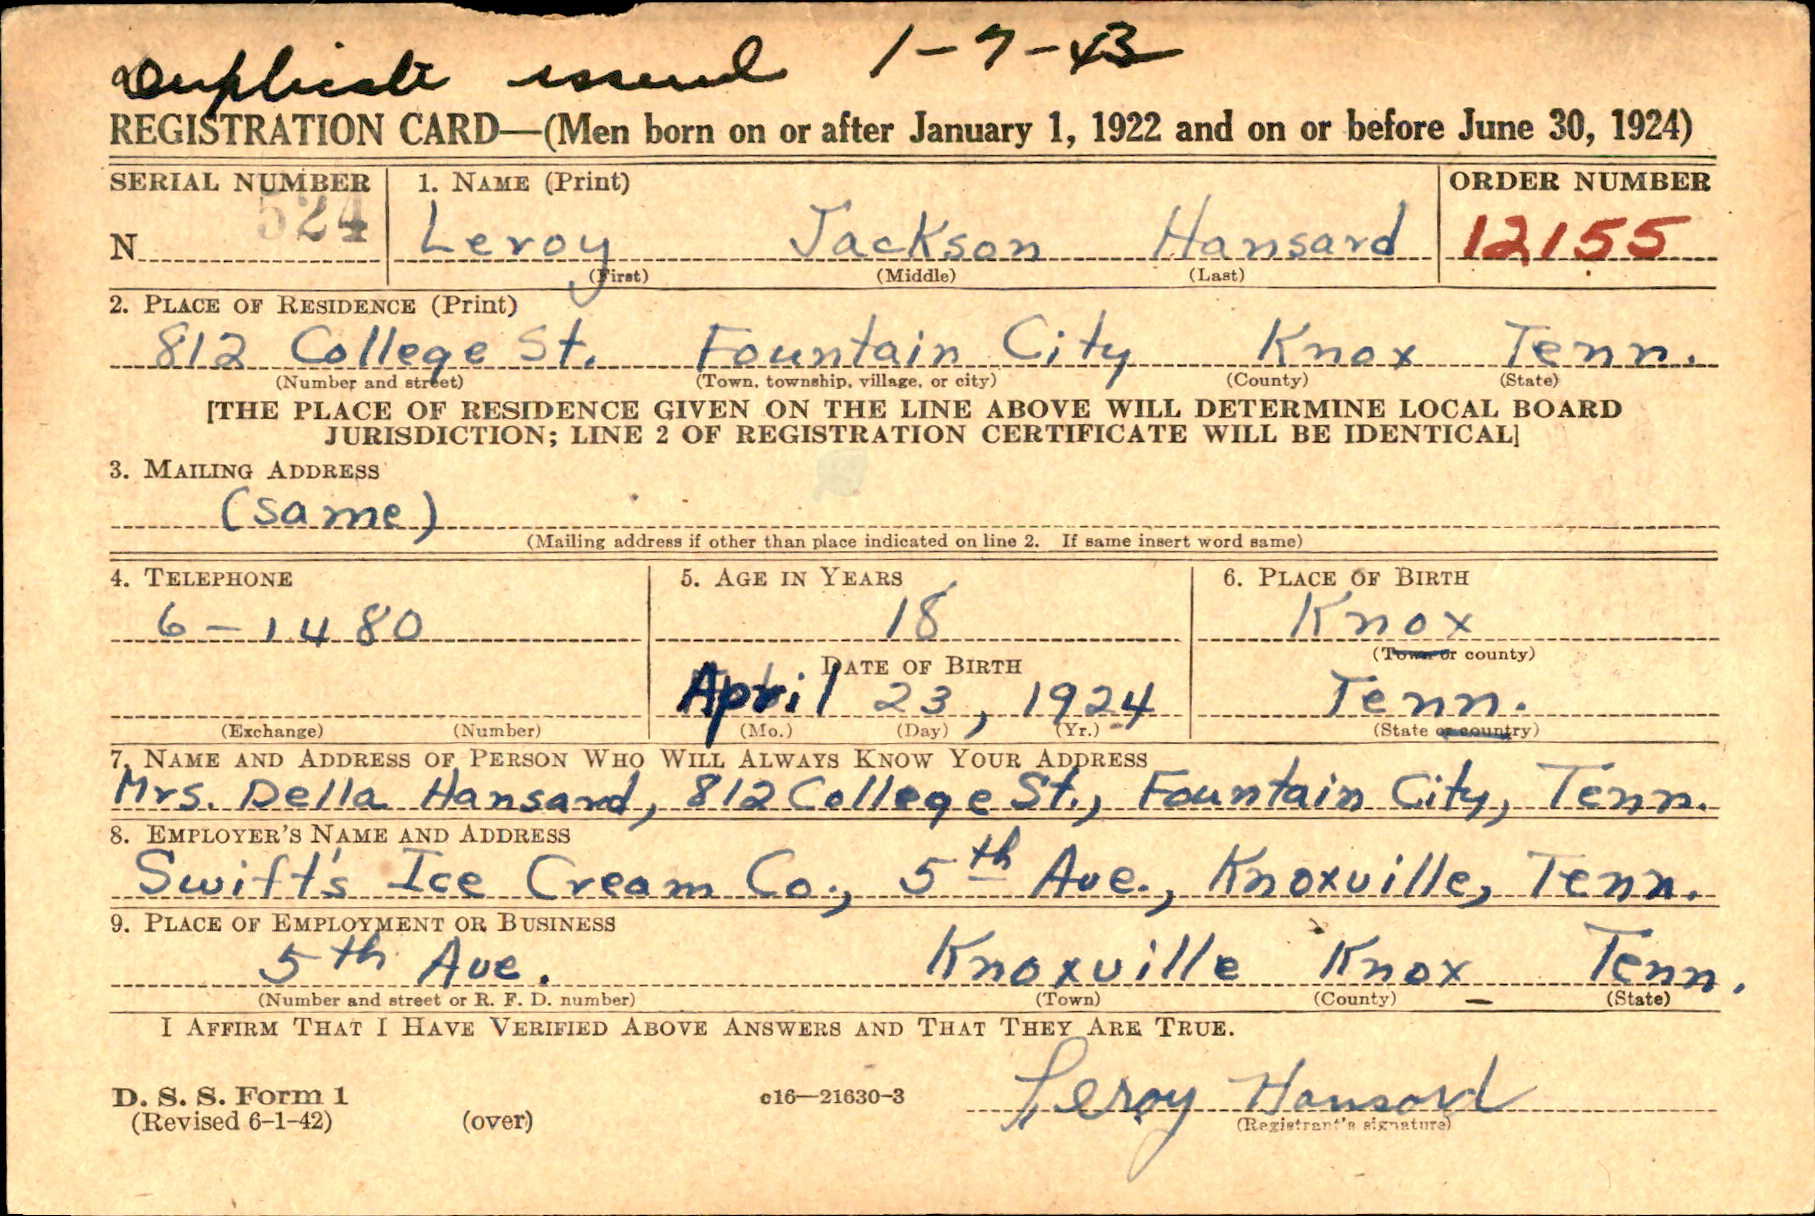 Duplicate issued 1-7-43
REGISTRATION CARD—(Men born on or after January 1, 1922 and on or before June 30, 1924)
SERIAL NUMBER 1. NAME (Print) ORDER NUMBER
N 524 Leroy Jackson Hansard 12155
(First) (Middle) (Last)
2. PLACE OF RESIDENCE (Print)
812 College St. Fountain City Knox Tenn.
(Number and street) (Town, township, village, or city) (County) (State)
[THE PLACE OF RESIDENCE GIVEN ON THE LINE ABOVE WILL DETERMINE LOCAL BOARD
JURISDICTION; LINE 2 OF REGISTRATION CERTIFICATE WILL BE IDENTICAL]
3. MAILING ADDRESS
(same)
(Mailing address if other than place indicated on line 2. If same insert word same)
4. TELEPHONE 5. AGE IN YEARS 6. PLACE OF BIRTH
6-1480 18 Knox
(Town or county)
DATE OF BIRTH
April 23, 1924 Tenn.
(Exchange) (Number) (Mo.) (Day) (Yr.) (State or country)
7. NAME AND ADDRESS OF PERSON WHO WILL ALWAYS KNOW YOUR ADDRESS
Mrs. Della Hansard, 812 College St., Fountain City, Tenn.
8. EMPLOYER'S NAME AND ADDRESS
Swift's Ice Cream Co., 5th Ave., Knoxville, Tenn.
9. PLACE OF EMPLOYMENT OR BUSINESS
5th Ave. Knoxville Knox Tenn.
(Number and street or R. F. D. number) (Town) (County) (State)
I AFFIRM THAT I HAVE VERIFIED ABOVE ANSWERS AND THAT THEY ARE TRUE.
D. S. S. Form 1 c16—21630-3 Leroy Hansard
(Revised 6-1-42) (over) (Registrant's signature)